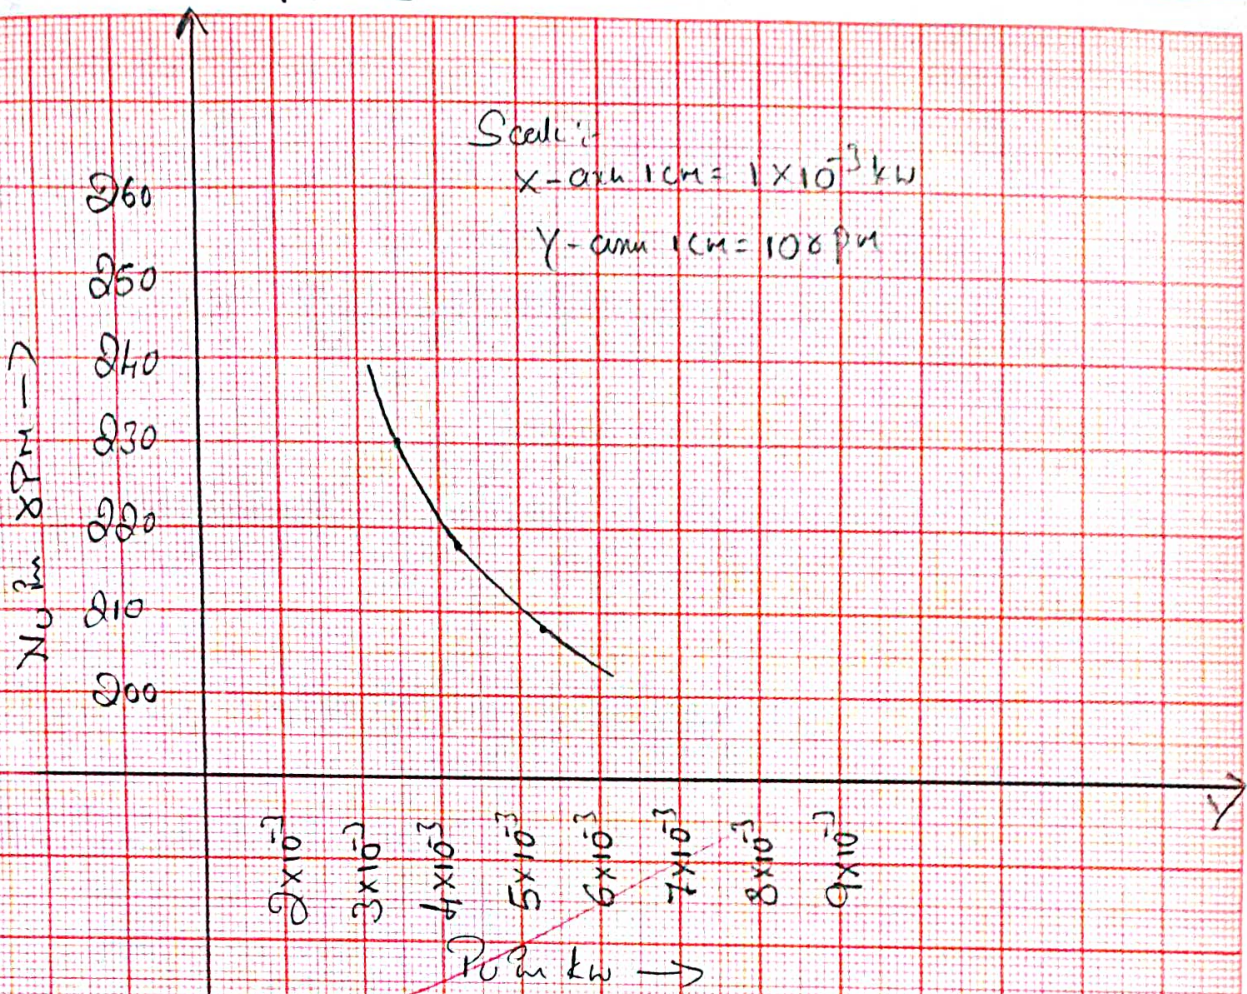 Scale :-
X-axis 1cm = 1×10⁻³ kW
Y-axis 1cm = 10rpm
260
250
240
230
220
210
200
Nu in rPM →
2×10⁻³
3×10⁻³
4×10⁻³
5×10⁻³
6×10⁻³
7×10⁻³
8×10⁻³
9×10⁻³
Pu in kw →